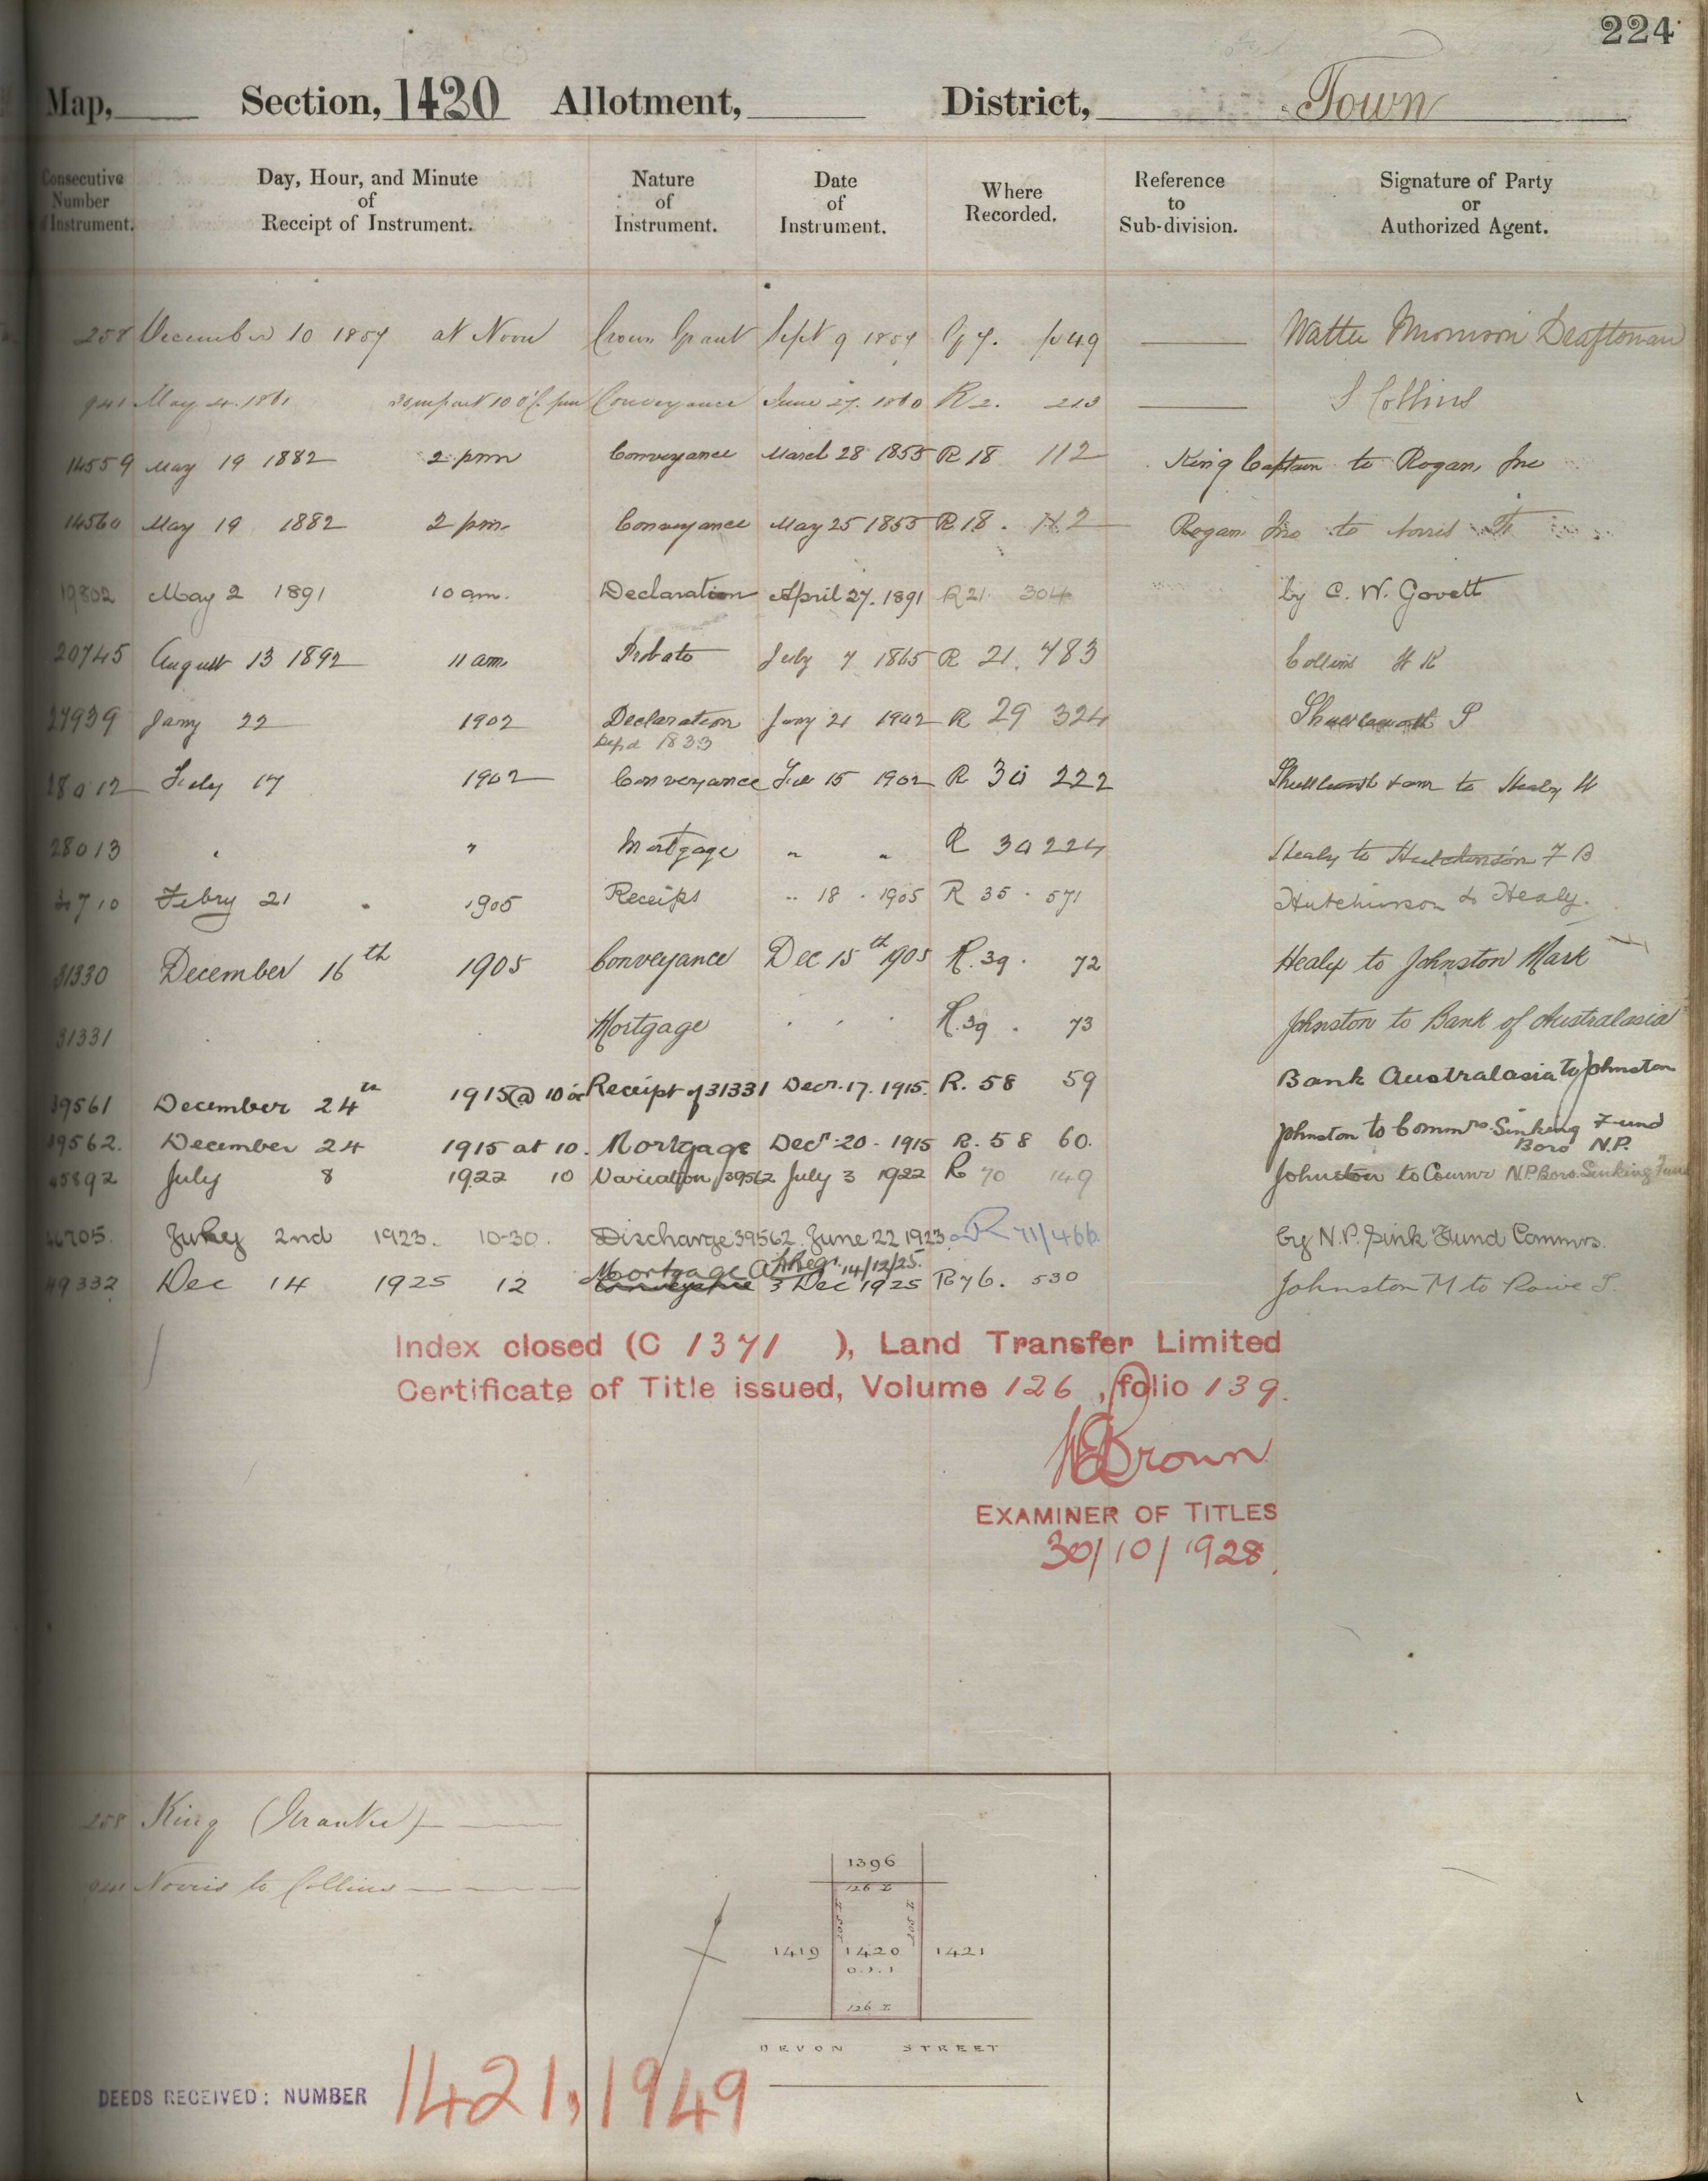 224
Map, Section, 1420 Allotment, District, Town
Consecutive Number Instrument. Day, Hour, and Minute of Receipt of Instrument. Nature of Instrument. Date of Instrument. Where Recorded. Reference to Sub-division. Signature of Party or Authorized Agent.
258 December 10 1857 at Noon Crown Grant Sept 9 1857 G 7. p 49 Draftsman
941 May 4. 1861 Conveyance June 27. 1860 R 2. 213 S Collins
14559 May 19 1882 2 pm Conveyance March 28 1855 R 18 112 King Captain to Rogan, Jno
14560 May 19 1882 2 pm. Conveyance May 25 1855 R 18. 112 Rogan Jno to Norris
19802 May 2 1891 10 am. Declaration April 27. 1891 R 21 304 by C. W. Govett
20745 August 13 1892 11 am. Probate July 7 1865 R 21. 483 Collins H K
27939 Jany 22 1902 Declaration Jany 21 1902 R 29 324
Depd 1833
28012 July 17 1902 Conveyance 15 1902 R 30 222 to Healy W
28013 " Mortgage " " R 30 224 Healy to Hutchinson F B
Febry 21 " 1905 Receipt " 18 . 1905 R 35 . 571 Hutchinson to Healy.
31330 December 16th 1905 Conveyance Dec 15th 1905 R. 39 . 72 Healy to Johnston Mark
31331 Mortgage R. 39 . 73 Johnston to Bank of Australasia
39561 December 24th 1915 @ 10 Receipt of 31331 Decr. 17. 1915. R. 58 59 Bank Australasia to Johnston
39562. December 24 1915 at 10. Mortgage Decr. 20 - 1915 R. 58 60. Johnston to Commrs Sinking Fund
Boro N.P.
45892 July 8 1922 10 Variation 39562 July 3 1922 R 70 149 Johnston to Commr N.P. Boro. Sinking Fund
46705. July 2nd 1923. 10-30. Discharge 39562. June 22 1923 R 71/466 by N.P. Sink Fund Commrs.
Mortgage 14/12/25.
49332 Dec 14 1925 12 Conveyance 3 Dec 1925 R 76. 530 Johnston M to Rowe S.
Index closed (C 1371 ), Land Transfer Limited
Certificate of Title issued, Volume 126, folio 139.
Brown
EXAMINER OF TITLES
30/10/1928.
258 King (Grantee)
941 Norris to Collins
1396
126 L
1419 1420 1421
0.1.1
126 L
DEVON STREET
DEEDS RECEIVED: NUMBER 1421, 1949